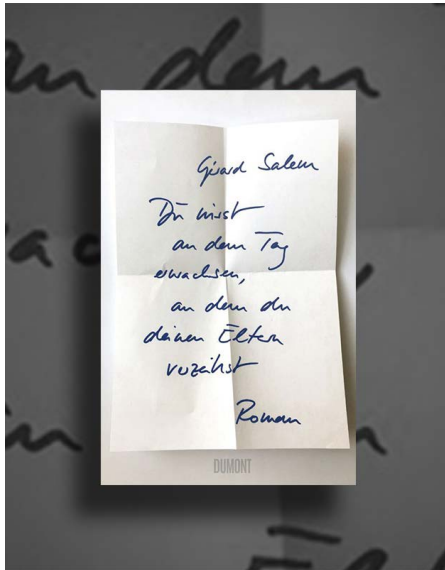 an dem
Gérard Salem
Du wirst
an dem Tag
erwachsen,
an dem du
deinen Eltern
verzeihst
Roman
DUMONT